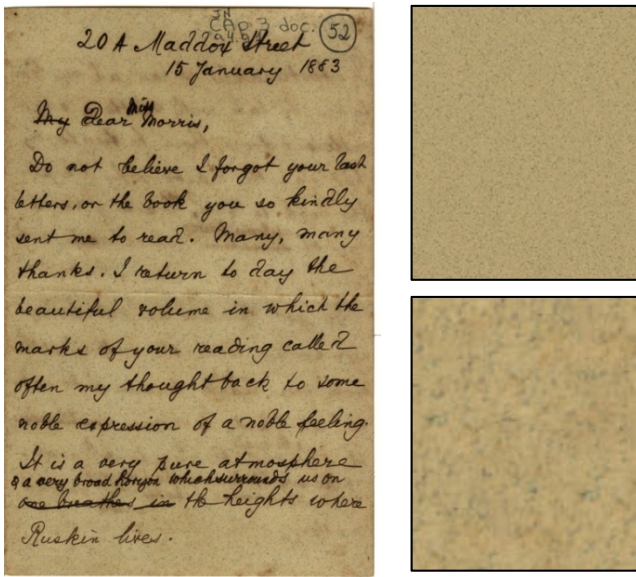 CAp 3 doc. 52
20 A Maddox Street
15 January 1883
My Dear Miss Morris,
Do not believe I forgot your last
letters, or the book you so kindly
sent me to read. Many, many
thanks. I return to day the
beautiful volume in which the
marks of your reading called
often my thought back to some
noble expression of a noble feeling.
It is a very pure atmosphere
& a very broad horyon which surrounds us on
one breathes in the heights where
Ruskin lives.